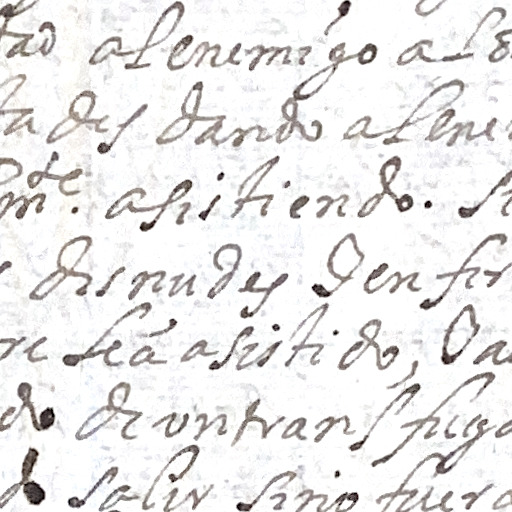 tad alenemigo a lo
tades dando alene
mte. asistiendo. si
s desnudes Y en fer
re seá asistido, Va
do de un transfuga
do salir sino fuera